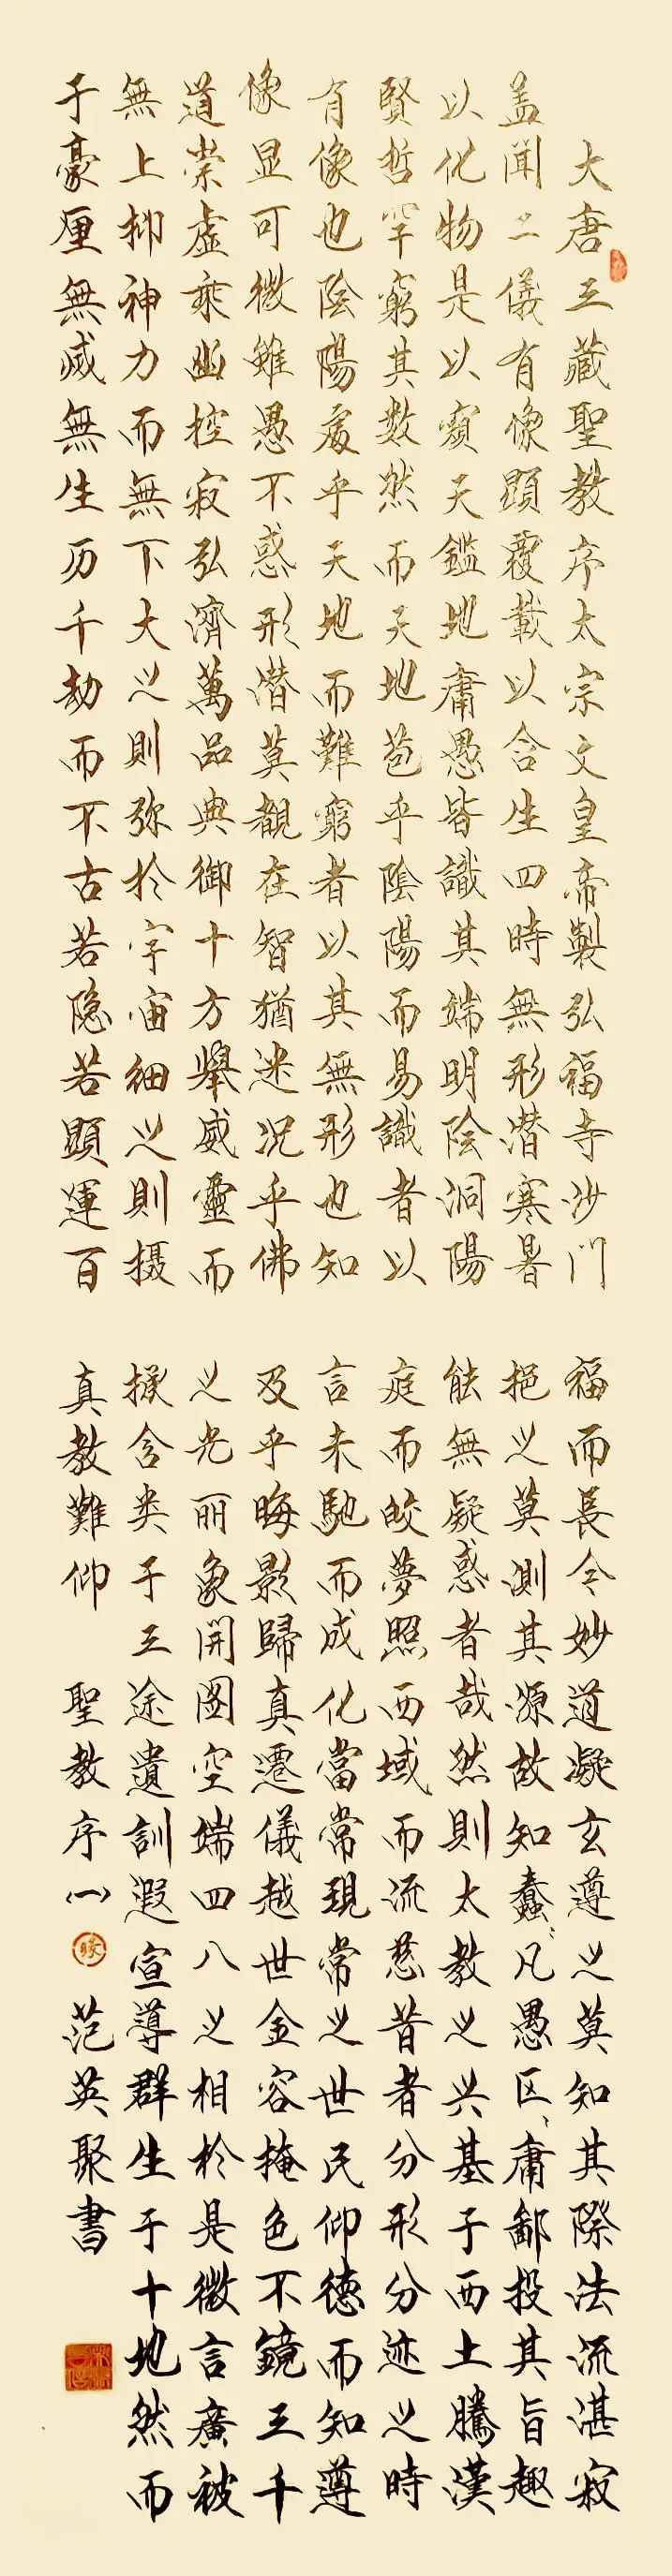 大唐三藏聖教序太宗文皇帝製弘福寺沙門
盖聞二儀有像顕覆載以含生四時無形潜寒暑
以化物是以窺天鑑地庸愚皆識其端明陰洞陽
賢哲罕窮其数然而天地苞乎陰陽而易識者以
有像也陰陽處乎天地而難窮者以其無形也知
像显可徵雖愚不惑形潜莫覩在智猶迷况乎佛
道崇虚乘幽控寂弘濟萬品典御十方舉威靈而
無上抑神力而無下大之則弥於宇宙細之則摄
于豪厘無滅無生历千劫而不古若隐若顕運百
福而長今妙道凝玄遵之莫知其際法流湛寂
挹之莫測其源故知蠢〻凡愚区〻庸鄙投其旨趣
能無疑惑者哉然則太教之兴基于西土騰漢
庭而皎夢照西域而流慈昔者分形分迹之時
言未馳而成化當常現常之世民仰德而知遵
及乎晦影歸真遷儀越世金容掩色不鏡三千
之光丽象開图空端四八之相於是微言廣被
拯含类于三途遺訓遐宣導群生于十地然而
真教難仰 聖教序(一) 范英聚書